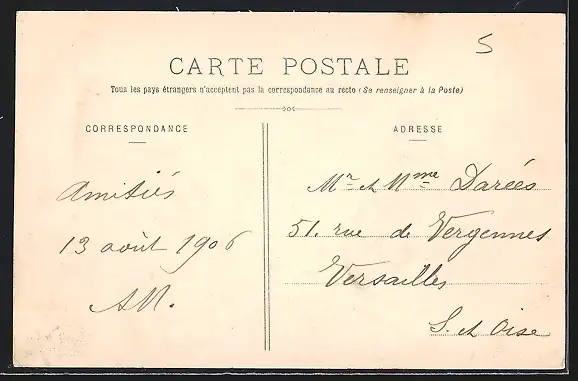 5
CARTE POSTALE
Tous les pays étrangers n'acceptent pas la correspondance au recto (Se renseigner à la Poste)
CORRESPONDANCE
Amitiés
13 août 1906
ADRESSE
Mr et Mme Darées
51. rue de Vergennes
Versailles
S. et Oise